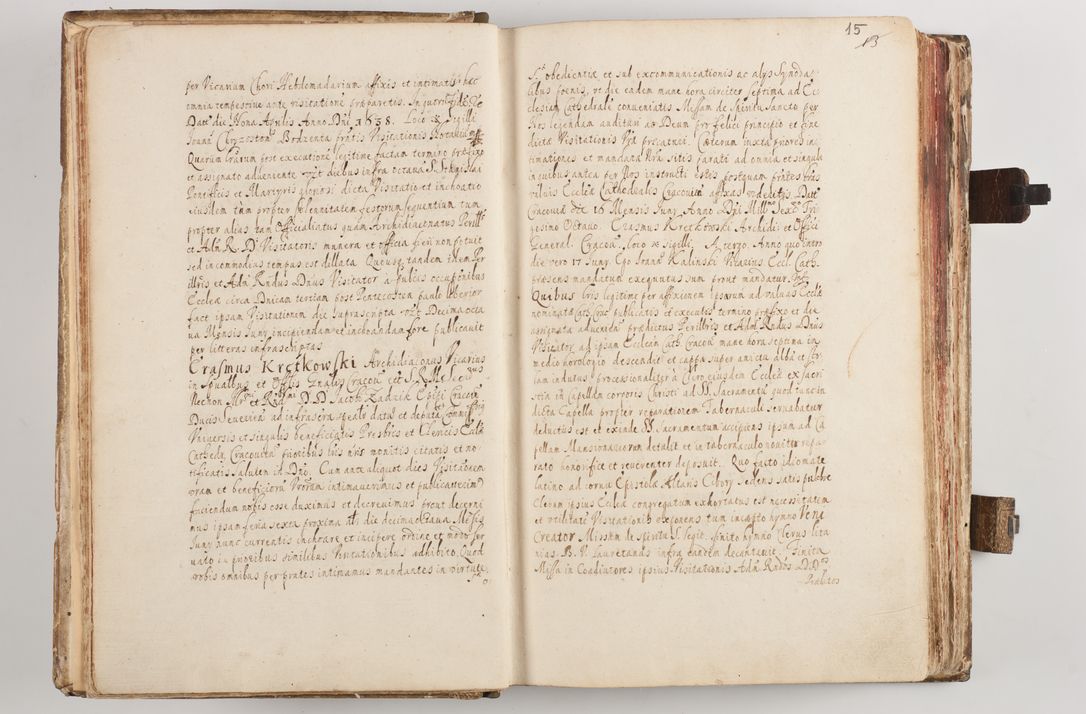 per Vicarium Chori Hebdomadarium affixis et intimatis hęc
omnia tempestive ante visitationẽ præparetis. In quorũ fidẽ
Datt die Nona Aprilis Anno Dñi 1638. Loco Sigilli
Joañ Chrizostom Bodzenta pñtis Visitationis Notarius
Quarum lrarum post executionẽ legitime factam termino præfixo
et assignato adveniente diebus infra octavã S. Stanislai
Pontificis et Martyris gloriosi dicta Visitatio et inchoatio
eiusdem tam propter solennitatem festorum sequentium tum
propter alias tam Officialatus quàm Archidiaconatus Perillris
et Adm R. D. Visitatoris munera et officia fieri non potuit
sed in commodius tempus est dillata. Quousq tandem idem Per
illris et Adm Rndus Dnus Visitator à publicis occupõnibus
Ecclea circa Dnicam tertiam post Pentecosten paulo liberior
fact ipsam Visitationem die suprascripta Decima octa
va Mensis Juny incipiendam et inchoandam fore publicavit
per litteras infrascriptas
Erasmus Kretkowski Archidiaconus Vicarius
in Spualibus et Offlis Gnalis Cracov
Necnon D.D Jacobi Zadzik Epiĩ Cracov
Ducis Severiæ ad infrascra spealr datus et deputa
Universis et singulis beneficiatis Presbris et Clericis Eccla
Cathedr Cracovieñ prioribus lris nris monitis citatis et no-
tificatis Salutem in Dño. Cum ante aliquot dies Visitationem
vram et beneficiorũ Vrorum intimaverimus et publicaverim9
faciendum nobis esse duximus et decrevimus prout decerni
mus ipsam feria sexta proxima die decima octava Mesis
Juny nunc currentis inchoare et incipere ordine et modo ser
vato in prioribus similibus Visitationibus adhibito. Quod
vobis omnibus per pñtes intimamus mandantes in virtute
15
13
obedientiæ et sub excommunicationis ac alijs Synoda-
libus pœnis, ut die eadem mane hora circiter septima ad Ec-
clesiam Cathedralẽ conveniatis Missam de Spiritu Sancto per
Nos legendam audituri ac Deum pro felici principio et fine
dictæ Visitationis Vrã precaturi. Cæterum iuxta priores in-
timationes et mandata Nra sitis parati ad omnia et singula
in quibus antea per Nos instructi estis postquam pñtes
valvis Ecclea Cathedralis Cracovieñ affixas videritis. Datt
Cracoviæ die 16 Mensis Juny Anno Dñi Mill Sexc Tri-
gesimo Octavo. Erasmus Kretkowski Archidi: et Offici
General. Cracov. Loco Sigilli. A tergo. Anno quo intro
die vero 17 Juny. Ego Joañ Kalinski Vicarius Eccl. Cath.
præsens mandatum exequutus sum prout mandatur.
Quibus lris legitime per affixionem ipsarum ad valvas Ecclæ
nominatæ Cath Crac publicatis et executis termino præfixo et die
assignata adveniẽ prædictus Perillris et Adm Rndus Dnus
Visitator ad ipsam Eccleam Cath Cracov mane hora septima in
medio horologio descendit et cappa super amictu alba et sto-
lam indutus processionaliter à Clero eiusdem Ecclea ex sacri
stia in Capellam corporis Christi ad SS. Sacramentũ quod tunc in
dicta Capella propter reparationem Tabernaculi servabatur
deductus est et exinde SS. Sacramentum accipiens ipsum ad Ca
pellam Mansionariorum detulit et in tabernaculo noviter repa-
rato honorifice et reverenter deposuit. Quo facto idiomate
latino ad cornu Epistolæ Altaris Cibory sedens satis pulchre
Clerum ipsius Ecclea congregatum exhortatus est necessitatem
et utilitatẽ Visitationis exponens tum incepto hymno Veni
Creator Missam de Spiritu S. legit, finito hymno Clerus lita
nias B. V. Lauretanas infra eandem decantavit. Finita
Missa in Coadiutores ipsius Visitationis Adm Rndos D.D
Prælatos